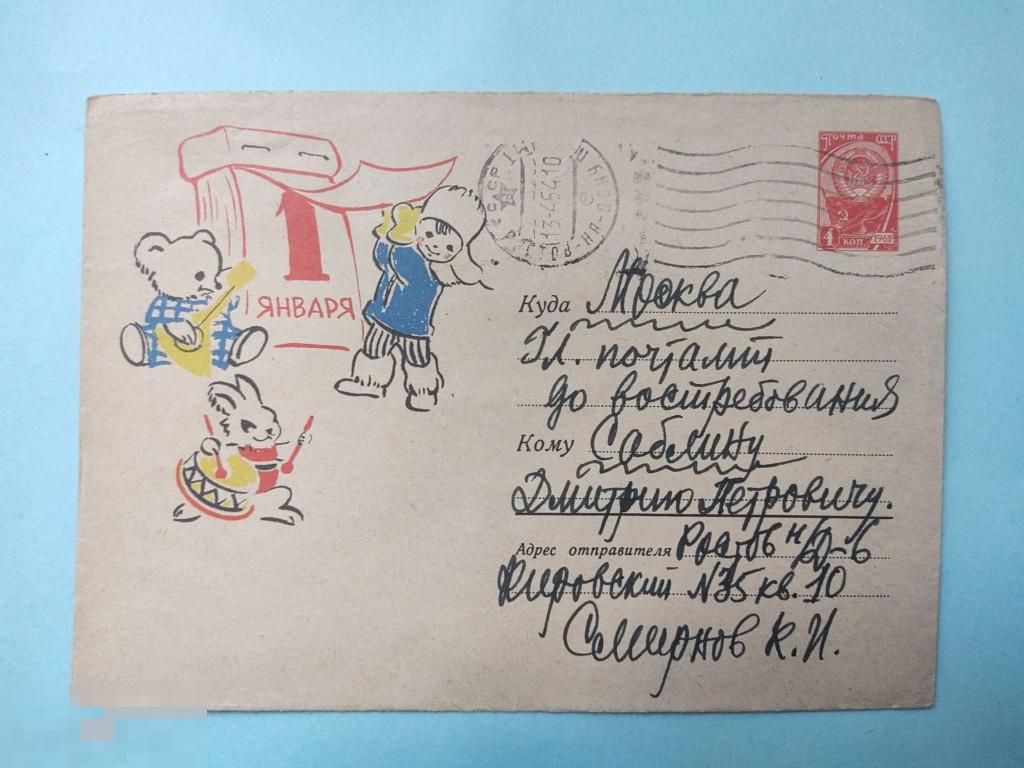 1
ЯНВАРЯ
ПОЧТА СССР
4 КОП. 1961
13-4 64 10
Куда Москва
Гл. почтамт
до востребования
Кому Саблину
Дмитрию Петровичу.
Адрес отправителя Ростов н/Д-6
Кировский №35 кв. 10
Смирнов К.И.